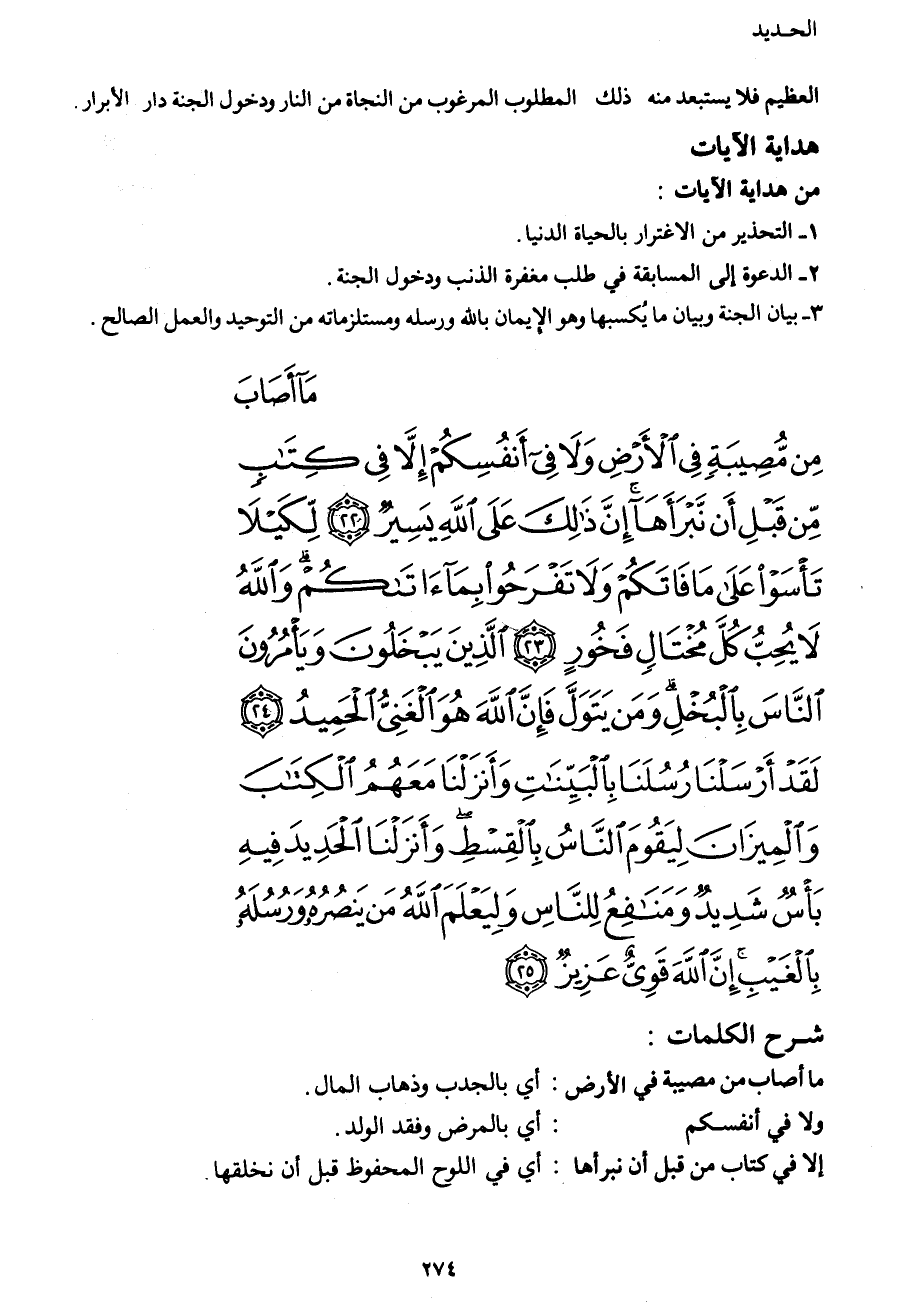 الحـديد
العظيم فلا يستبعد منه ذلك المطلوب المرغوب من النجاة من النار ودخول الجنة دار الأبرار .
هداية الآيات
من هداية الآيات :
١ـ التحذير من الاغترار بالحياة الدنيا .
٢ـ الدعوة إلى المسابقة في طلب مغفرة الذنب ودخول الجنة .
٣ـ بيان الجنة وبيان ما يُكسبها وهو الإيمان بالله ورسله ومستلزماته من التوحيد والعمل الصالح .
مَآ أَصَابَ
مِن مُّصِيبَةٍ فِى ٱلْأَرْضِ وَلَا فِىٓ أَنفُسِكُمْ إِلَّا فِى كِتَٰبٍ
مِّن قَبْلِ أَن نَّبْرَأَهَآ ۚ إِنَّ ذَٰلِكَ عَلَى ٱللَّهِ يَسِيرٌ ٢٢ لِّكَيْلَا
تَأْسَوْا۟ عَلَىٰ مَا فَاتَكُمْ وَلَا تَفْرَحُوا۟ بِمَآ ءَاتَىٰكُمْ ۗ وَٱللَّهُ
لَا يُحِبُّ كُلَّ مُخْتَالٍ فَخُورٍ ٢٣ ٱلَّذِينَ يَبْخَلُونَ وَيَأْمُرُونَ
ٱلنَّاسَ بِٱلْبُخْلِ ۗ وَمَن يَتَوَلَّ فَإِنَّ ٱللَّهَ هُوَ ٱلْغَنِىُّ ٱلْحَمِيدُ ٢٤
لَقَدْ أَرْسَلْنَا رُسُلَنَا بِٱلْبَيِّنَٰتِ وَأَنزَلْنَا مَعَهُمُ ٱلْكِتَٰبَ
وَٱلْمِيزَانَ لِيَقُومَ ٱلنَّاسُ بِٱلْقِسْطِ ۖ وَأَنزَلْنَا ٱلْحَدِيدَ فِيهِ
بَأْسٌ شَدِيدٌ وَمَنَٰفِعُ لِلنَّاسِ وَلِيَعْلَمَ ٱللَّهُ مَن يَنصُرُهُۥ وَرُسُلَهُۥ
بِٱلْغَيْبِ ۚ إِنَّ ٱللَّهَ قَوِىٌّ عَزِيزٌ ٢٥
شـرح الكلمات :
ما أصاب من مصيبة في الأرض : أي بالجدب وذهاب المال .
ولا في أنفسـكم : أي بالمرض وفقد الولد .
إلا في كتاب من قبل أن نبرأها : أي في اللوح المحفوظ قبل أن نخلقها .
٢٧٤